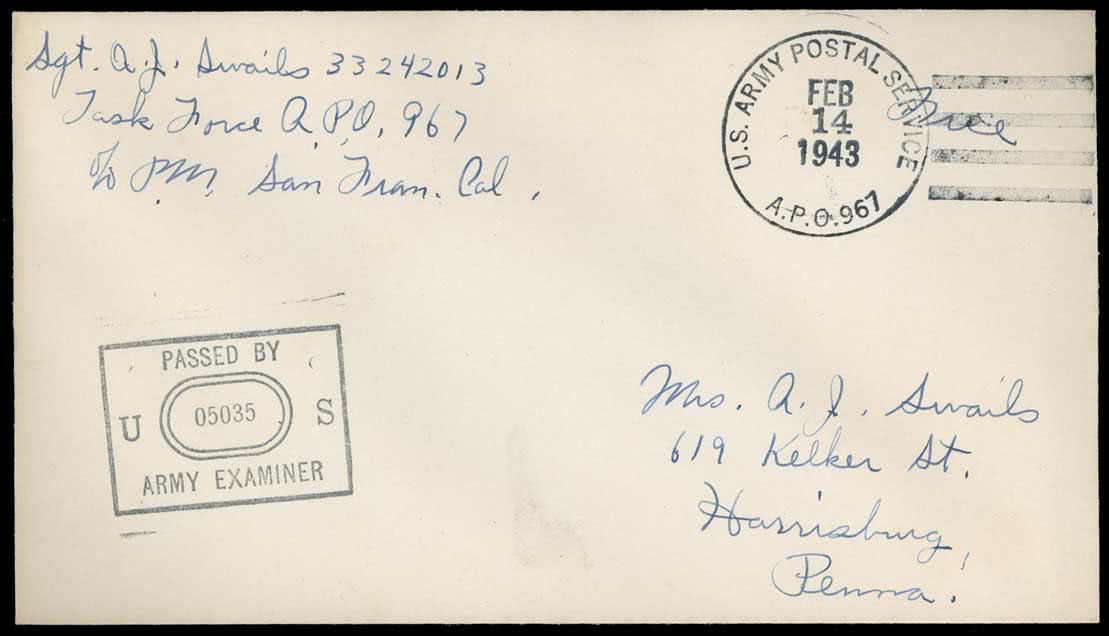 Sgt. A.J. Swails 33242013
Task Force A.P.O. 967
c/o P.M. San Fran. Cal.
U.S. ARMY POSTAL SERVICE
FEB
14
1943
A.P.O. 967
Free
PASSED BY
U 05035 S
ARMY EXAMINER
Mrs. A. J. Swails
619 Kelker St.
Harrisburg,
Penna.